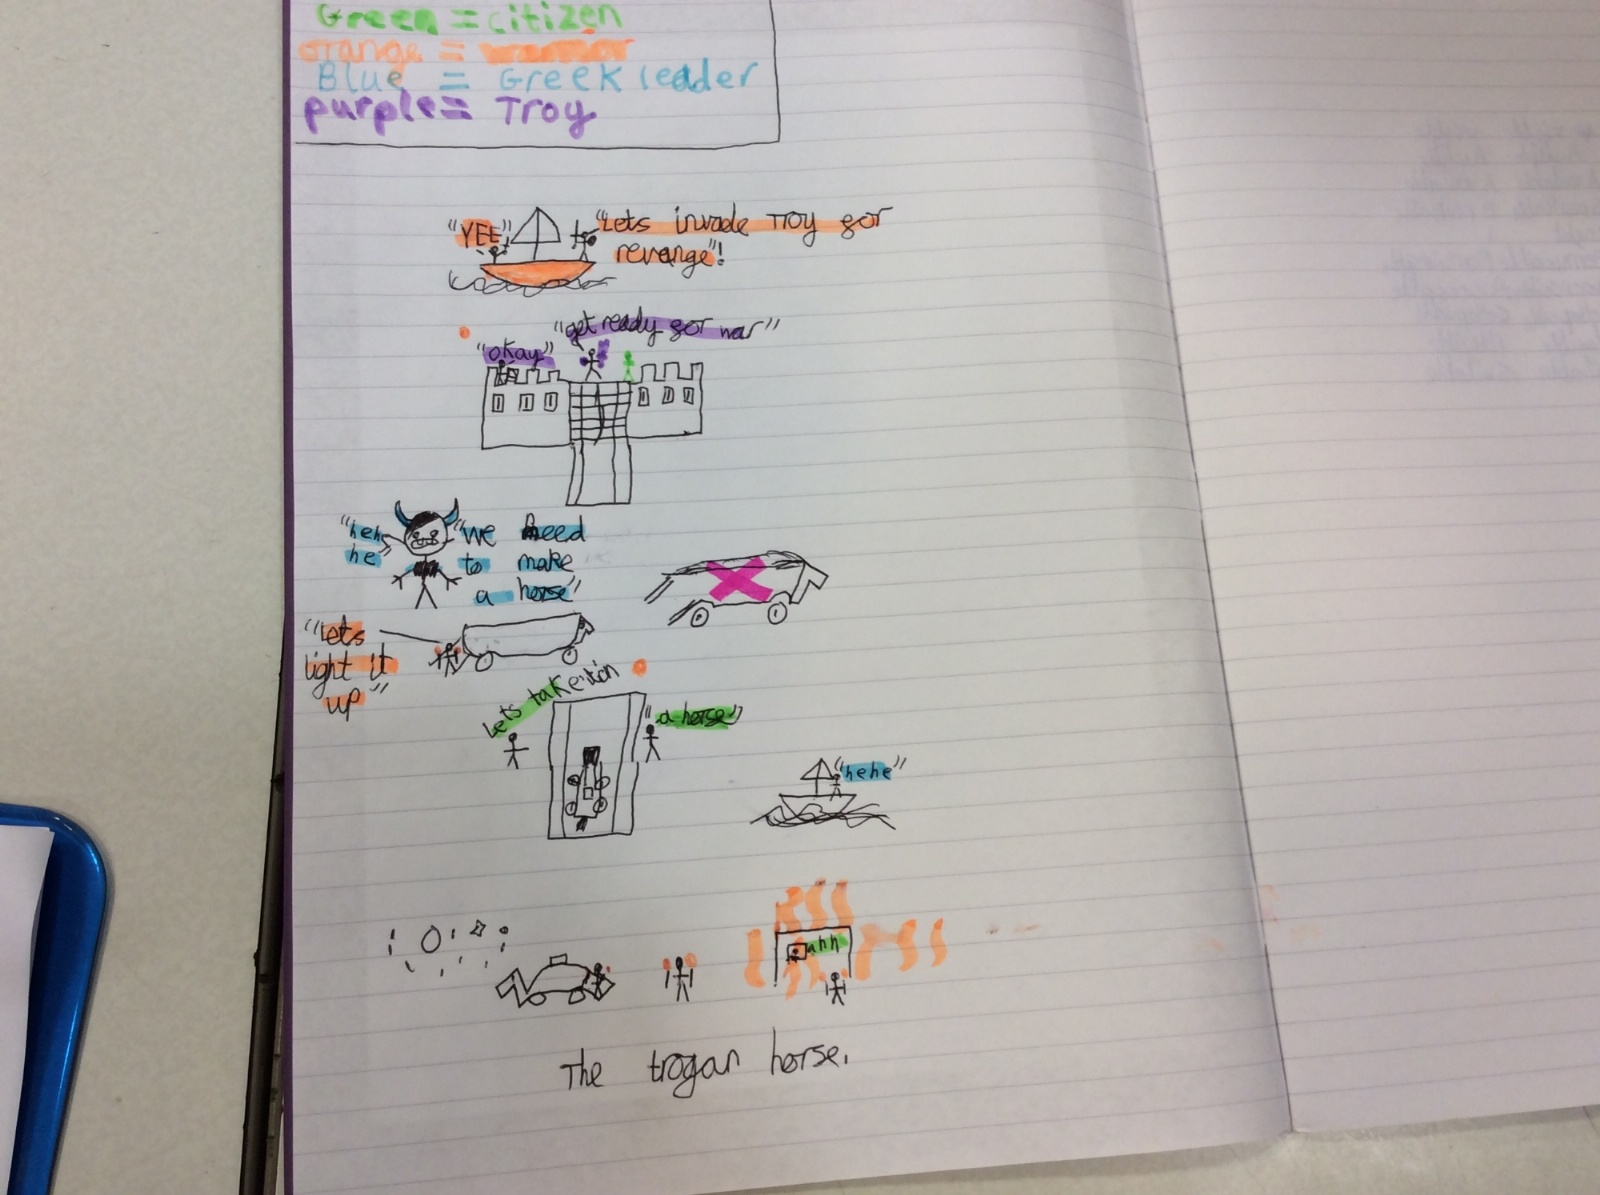 Green = citizen
orange = warrior
Blue = Greek leader
purple = Troy
"YEE" "Lets invade Troy gor
revenge"!
"get ready gor war"
"okay"
"heh "we need
he" to make
a horse"
"Lets
light it
up"
Lets take it in
"a horse"
"hehe"
ahh
The trogan horse.